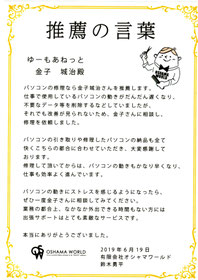 推薦の言葉
ゆーもあねっと
金子 城治殿
パソコンの修理なら金子城治さんを推薦します。
仕事で使用しているパソコンの動きがだんだん遅くなり、
不要なデータ等を削除するなどしていましたが、
それでも改善が見られないため、金子さんに相談し、
修理を依頼しました。
パソコンの引き取りや修理したパソコンの納品も全て
快くこちらの都合に合わせていただき、大変感謝して
おります。
修理して頂いてからは、パソコンの動きもかなり早くなり、
仕事も効率よく進んでいます。
パソコンの動きにストレスを感じるようになったら、
ぜひ一度金子さんに相談してみてください。
業務の都合上、なかなか外出できる時間もない方には
出張サポートはとても素敵なサービスです。
本当にありがとうございました。
OSHAMA WORLD
2019年6月19日
有限会社オシャマワールド
鈴木勇平